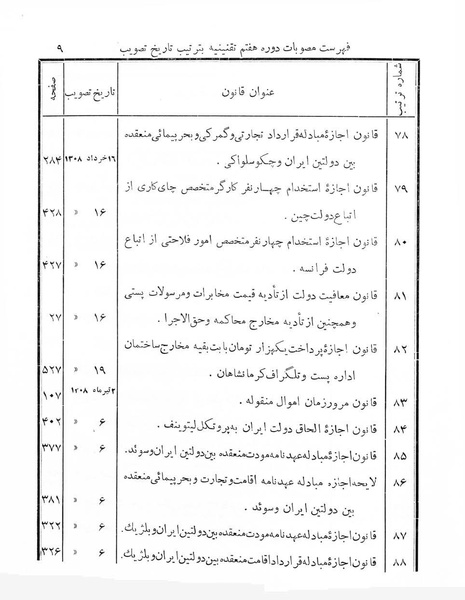 فهرست مصوبات دوره هفتم تقنینیه بترتیب تاریخ تصویب ۹
شماره ترتیب عنوان قانون تاریخ تصویب صفحه
۷۸ قانون اجازهٔ مبادله قرارداد تجارتی و گمرکی و بحر پیمائی منعقده
بین دولتین ایران و چکوسلواکی . ۱۶ خرداد ۱۳۰۸ ۲۸۴
۷۹ قانون اجازهٔ استخدام چهار نفر کارگر متخصص چای کاری از
اتباع دولت چین . ۱۶ « ۴۲۸
۸۰ قانون اجازهٔ استخدام چهار نفر متخصص امور فلاحتی از اتباع
دولت فرانسه . ۱۶ « ۴۲۷
۸۱ قانون معافیت دولت از تأدیه قیمت مخابرات و مرسولات پستی
و همچنین از تأدیه مخارج محاکمه و حق الاجرا . ۱۶ « ۲۷
۸۲ قانون اجازهٔ پرداخت یکهزار تومان بابت بقیه مخارج ساختمان
اداره پست و تلگراف کرمانشاهان . ۱۹ « ۵۲۷
۸۳ قانون مرور زمان اموال منقوله . ۲ تیر ماه ۱۳۰۸ ۱۰۷
۸۴ قانون اجازهٔ الحاق دولت ایران به پروتکل لیتوینف . ۶ « ۴۰۲
۸۵ قانون اجازهٔ مبادله عهدنامه مودت منعقده بین دولتین ایران و سوئد . ۶ « ۳۷۷
۸۶ لایحه اجازه مبادله عهدنامه اقامت و تجارت و بحر پیمائی منعقده
بین دولتین ایران و سوئد . ۶ « ۳۸۱
۸۷ قانون اجازهٔ مبادله عهدنامه مودت منعقده بین دولتین ایران و بلژیك . ۶ « ۳۲۲
۸۸ قانون اجازهٔ مبادله قرارداد اقامت منعقده بین دولتین ایران و بلژیك . ۶ « ۳۲۶